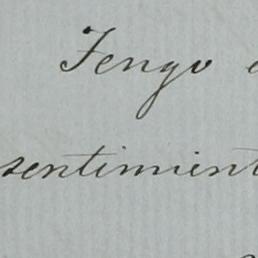 Tengo
sentimient